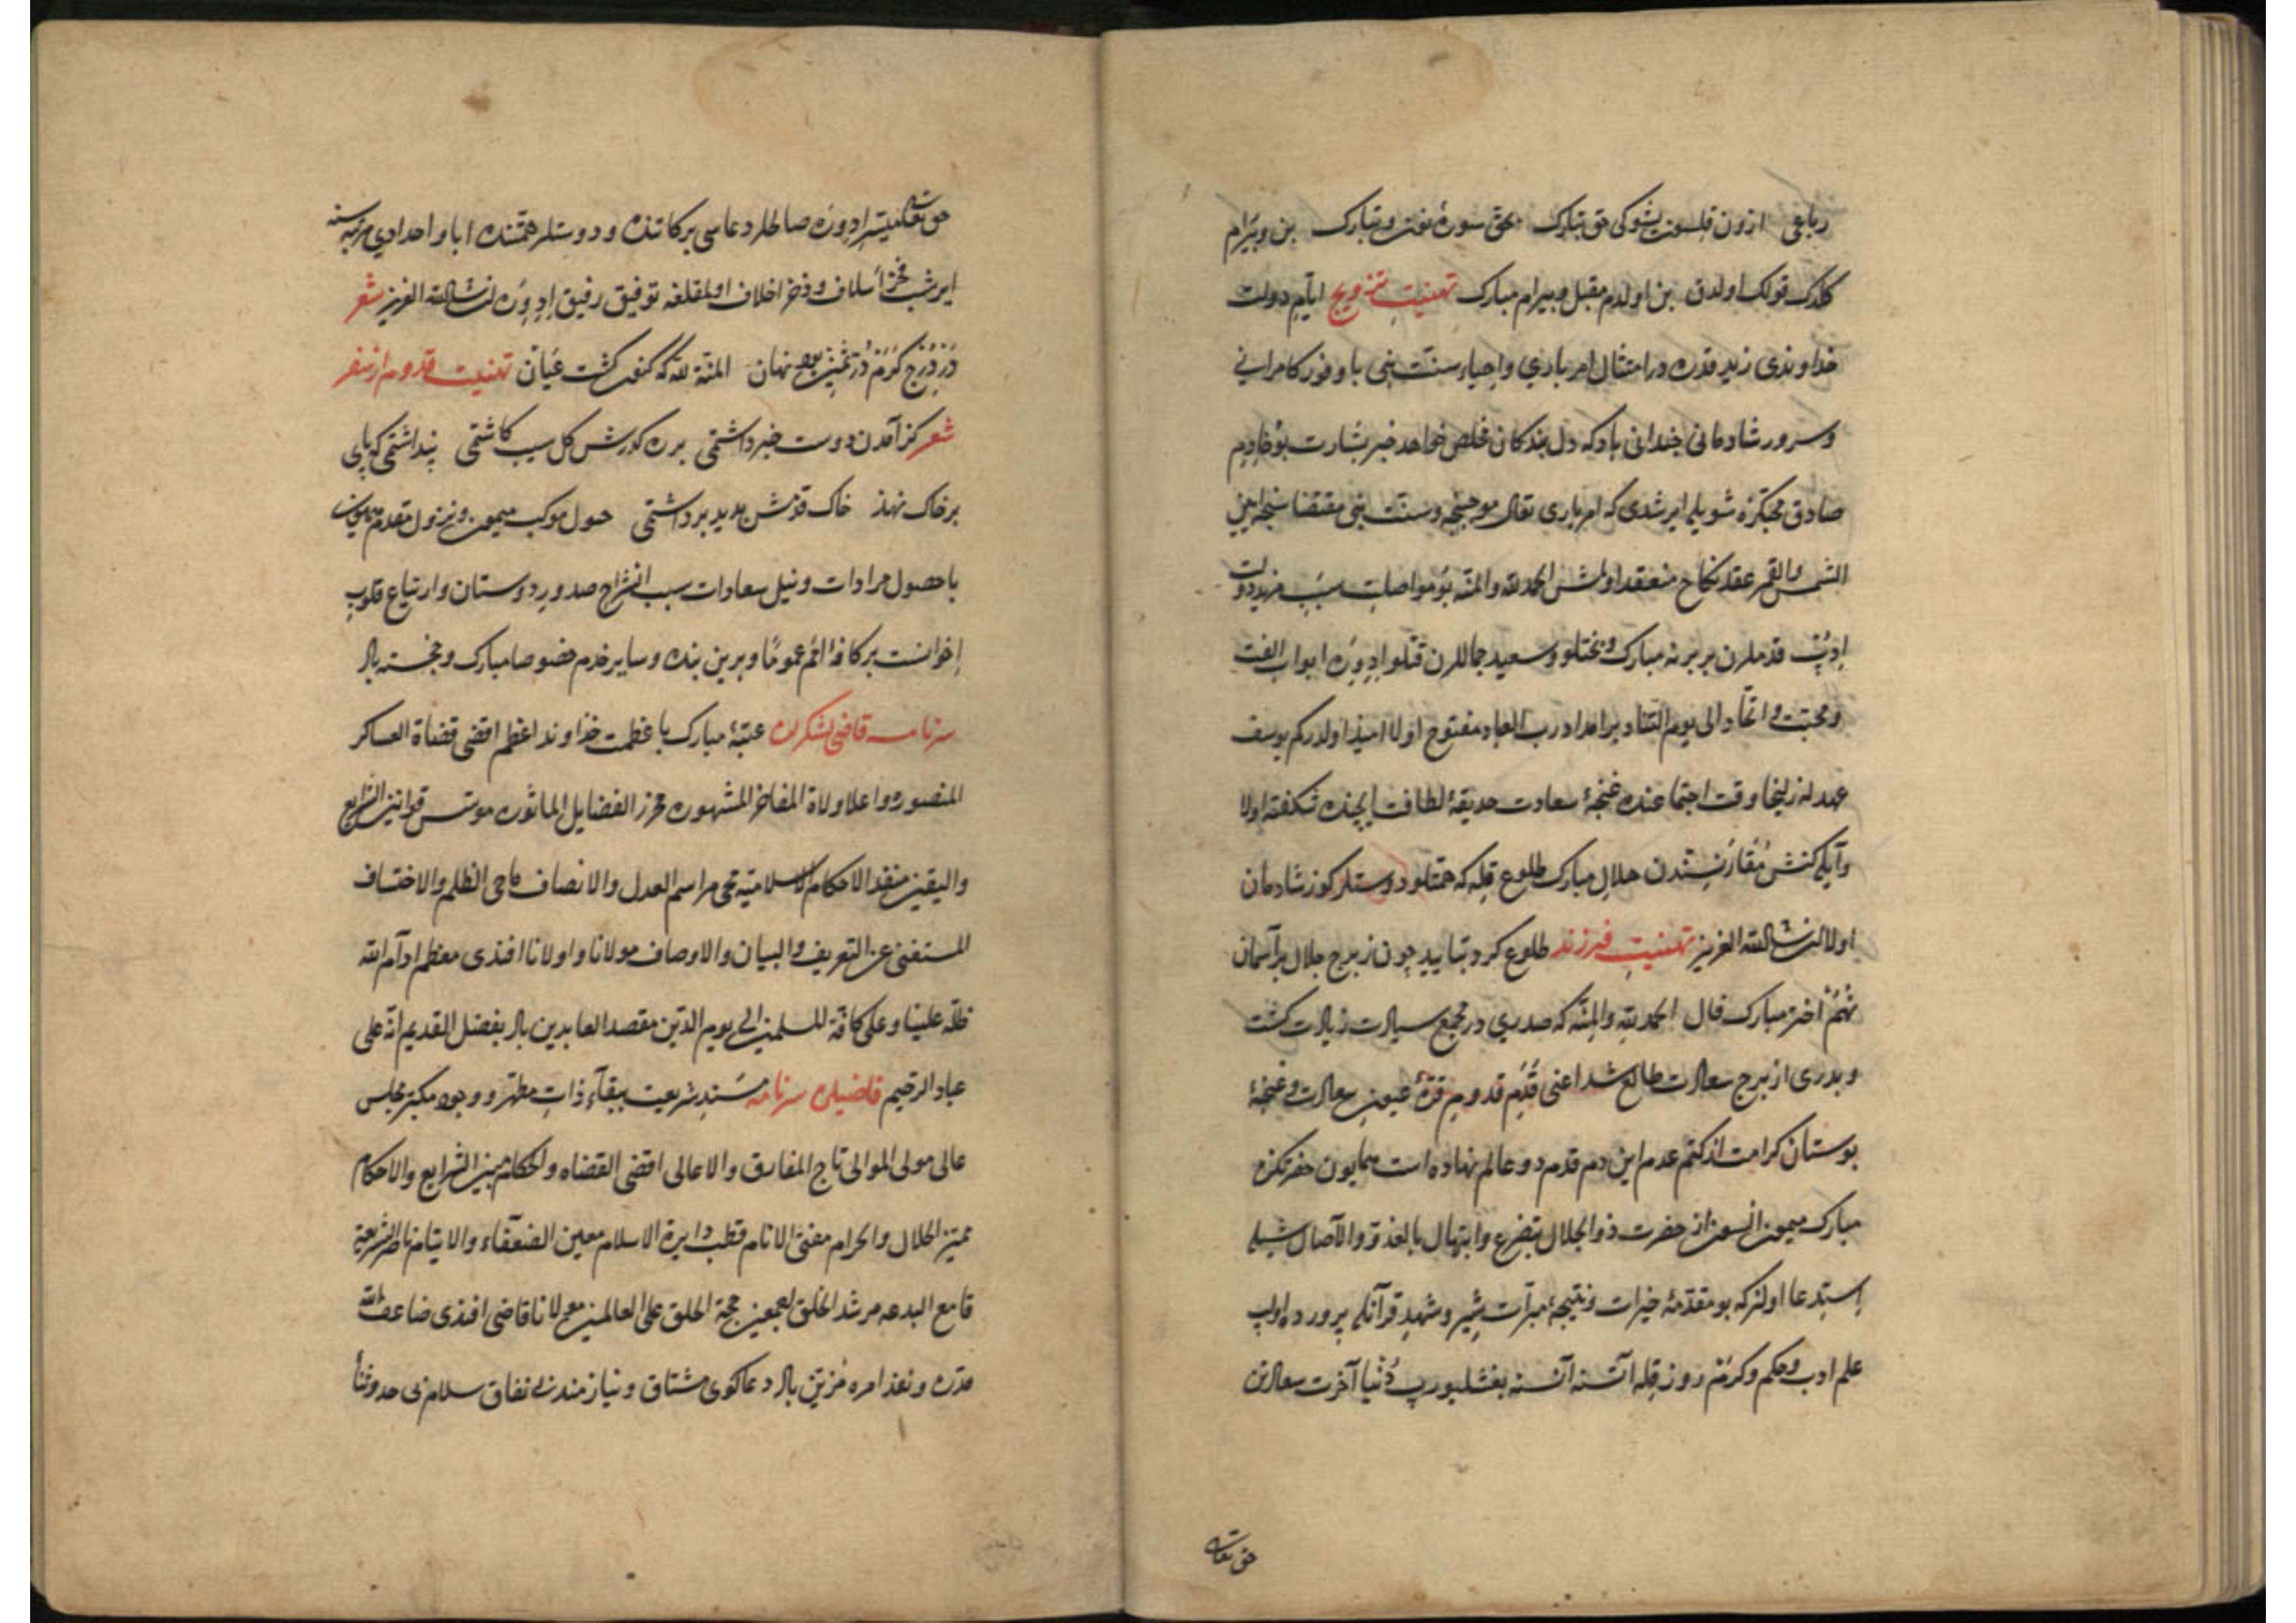 رباعی ازون قلسون بشوکی حق تبارک بحق سورهٔ نون و تبارک بن و بیرام
کلدک قولک اولدن بن اولدم مقبل و بیرام مبارک تهنیت تزویج ایام دولت
خداوندی زید قدره در امتثال امر باری و احیاء سنت بنی با وفور کامرانی
و سرور شادمانی جندانی باد که دل بندکان مخلص خواهد خبر بشارت بو خادم
صادق محبتکزه شویله ایرشدی که امر باری تعالی موجبنجه و سنت بنی مقتضاسنجه بین
الشمس والقمر عقد نکاح منعقد اولمش الحمد لله والمنه بو مواصلت سبب مزید دولت
ادیب قدملرن بربرنه مبارک و بختلو و سعید جماللرن قتلو ادویره ابواب الفت
و محبت و اتحاد الی یوم التناد بر امداد رب العباد مفتوح اولا امیذ اولدرکم یوسف
عهد له زلیخا وقت اجتماعنده غنجهٔ سعادت حدیقهٔ لطافت ایجنده شکفته اولا
و آیله کنش مقارنتندن هلال مبارک طلوع قله که همتلو دوستلر کوز شادمان
اولا ان شاء الله العزیز تهنیت فرزند طلوع کرد بتایید چون ز برج جلال بر آسمان
نهم اختر مبارک فال الحمد لله والمنه که صدری در مجمع سیادت زیادت کشت
و بدری از برج سعادت طالع شد اعنی قدم قدوم قرة عیون سعادت و غنجهٔ
بوستان کرامت از کتم عدم این دم قدم در عالم نهاده است همایون حضرتکزه
مبارک میمون السون از حضرت ذو الجلال بتضرع و ابتهال بالغدو والآصال شیله
استدعا اولنر که بو مقدمهٔ خیرات و نتیجهٔ مبرات شیر و شهد قرآنله پرورده اولب
علم ادب و حکم و کرم روز قله اتاسنه اناسنه بغشلیورب دنیا آخرت سعادتن
حق تعالی
حق تعالی میسر ادویره صالحلر دعاسی برکاتنده و دوستلر همتنده ابا و اجدادی مرتبه سنه
ایرشب فخر اسلاف و ذخر اخلاف اولمقلغه توفیق رفیق ادویره ان شاء الله العزیز شعر
در درج کرم در ثمین بود نهان المنة لله که کنون کشت عیان تهنیت قدوم از سفر
شعر کز آمدن دوست خبر داشتمی بره کذرش کل سبب کاشتمی پنداشتمی که پای
بر خاک نهذ خاک قدمش بدید برداشتمی حلول موکب میمون و نزول مقدم همایون
با حصول مرادات و نیل سعادات سبب انشراح صدور دوستان و ارتیاع قلوب
إخوانست بر کافه انام عموما و برین بنده و سایر خدم خصوصا مبارک و خجسته باد
سرنامه قاضی لشکران عتبهٔ مبارک با عظمت خذاوند اعظم اقضی قضاة العساکر
المنصوره و اعلا ولاة المفاخر المشهوره محرز الفضایل الماثوره موسس قوانین الشرایع
والیقین منفذ الاحکام الاسلامیة محی مراسم العدل والانصاف ماحی الظلم والاختساف
المستغنی عن التعریف والبیان والاوصاف مولانا و اولانا افندی معظم ادام الله
ظله علینا و علی کافة المسلمین الی یوم الدین مقصد العابدین باد بفضل القدیم انه علی
عباد الرحیم قاضیلره سرنامه مسند شریعت ببقآء ذات مطهر و وجود مکبر مجلس
عالی مولی الموالی تاج المفارق والاعالی اقضی القضاه والحکام مبین الشرایع والاحکام
ممیز الحلال والحرام مفتی الانام قطب دایرة الاسلام معین الضعفاء والایتام ناصر الشریعة
قامع البدعه مرشد الخلق اجمعین حجة الحق علی العالمین مولانا قاضی افندی ضاعف الله
قدره و نفذ امره مزین باد دعاکوی مشتاق و نیازمند بی نفاق سلام بی حد و ثنا